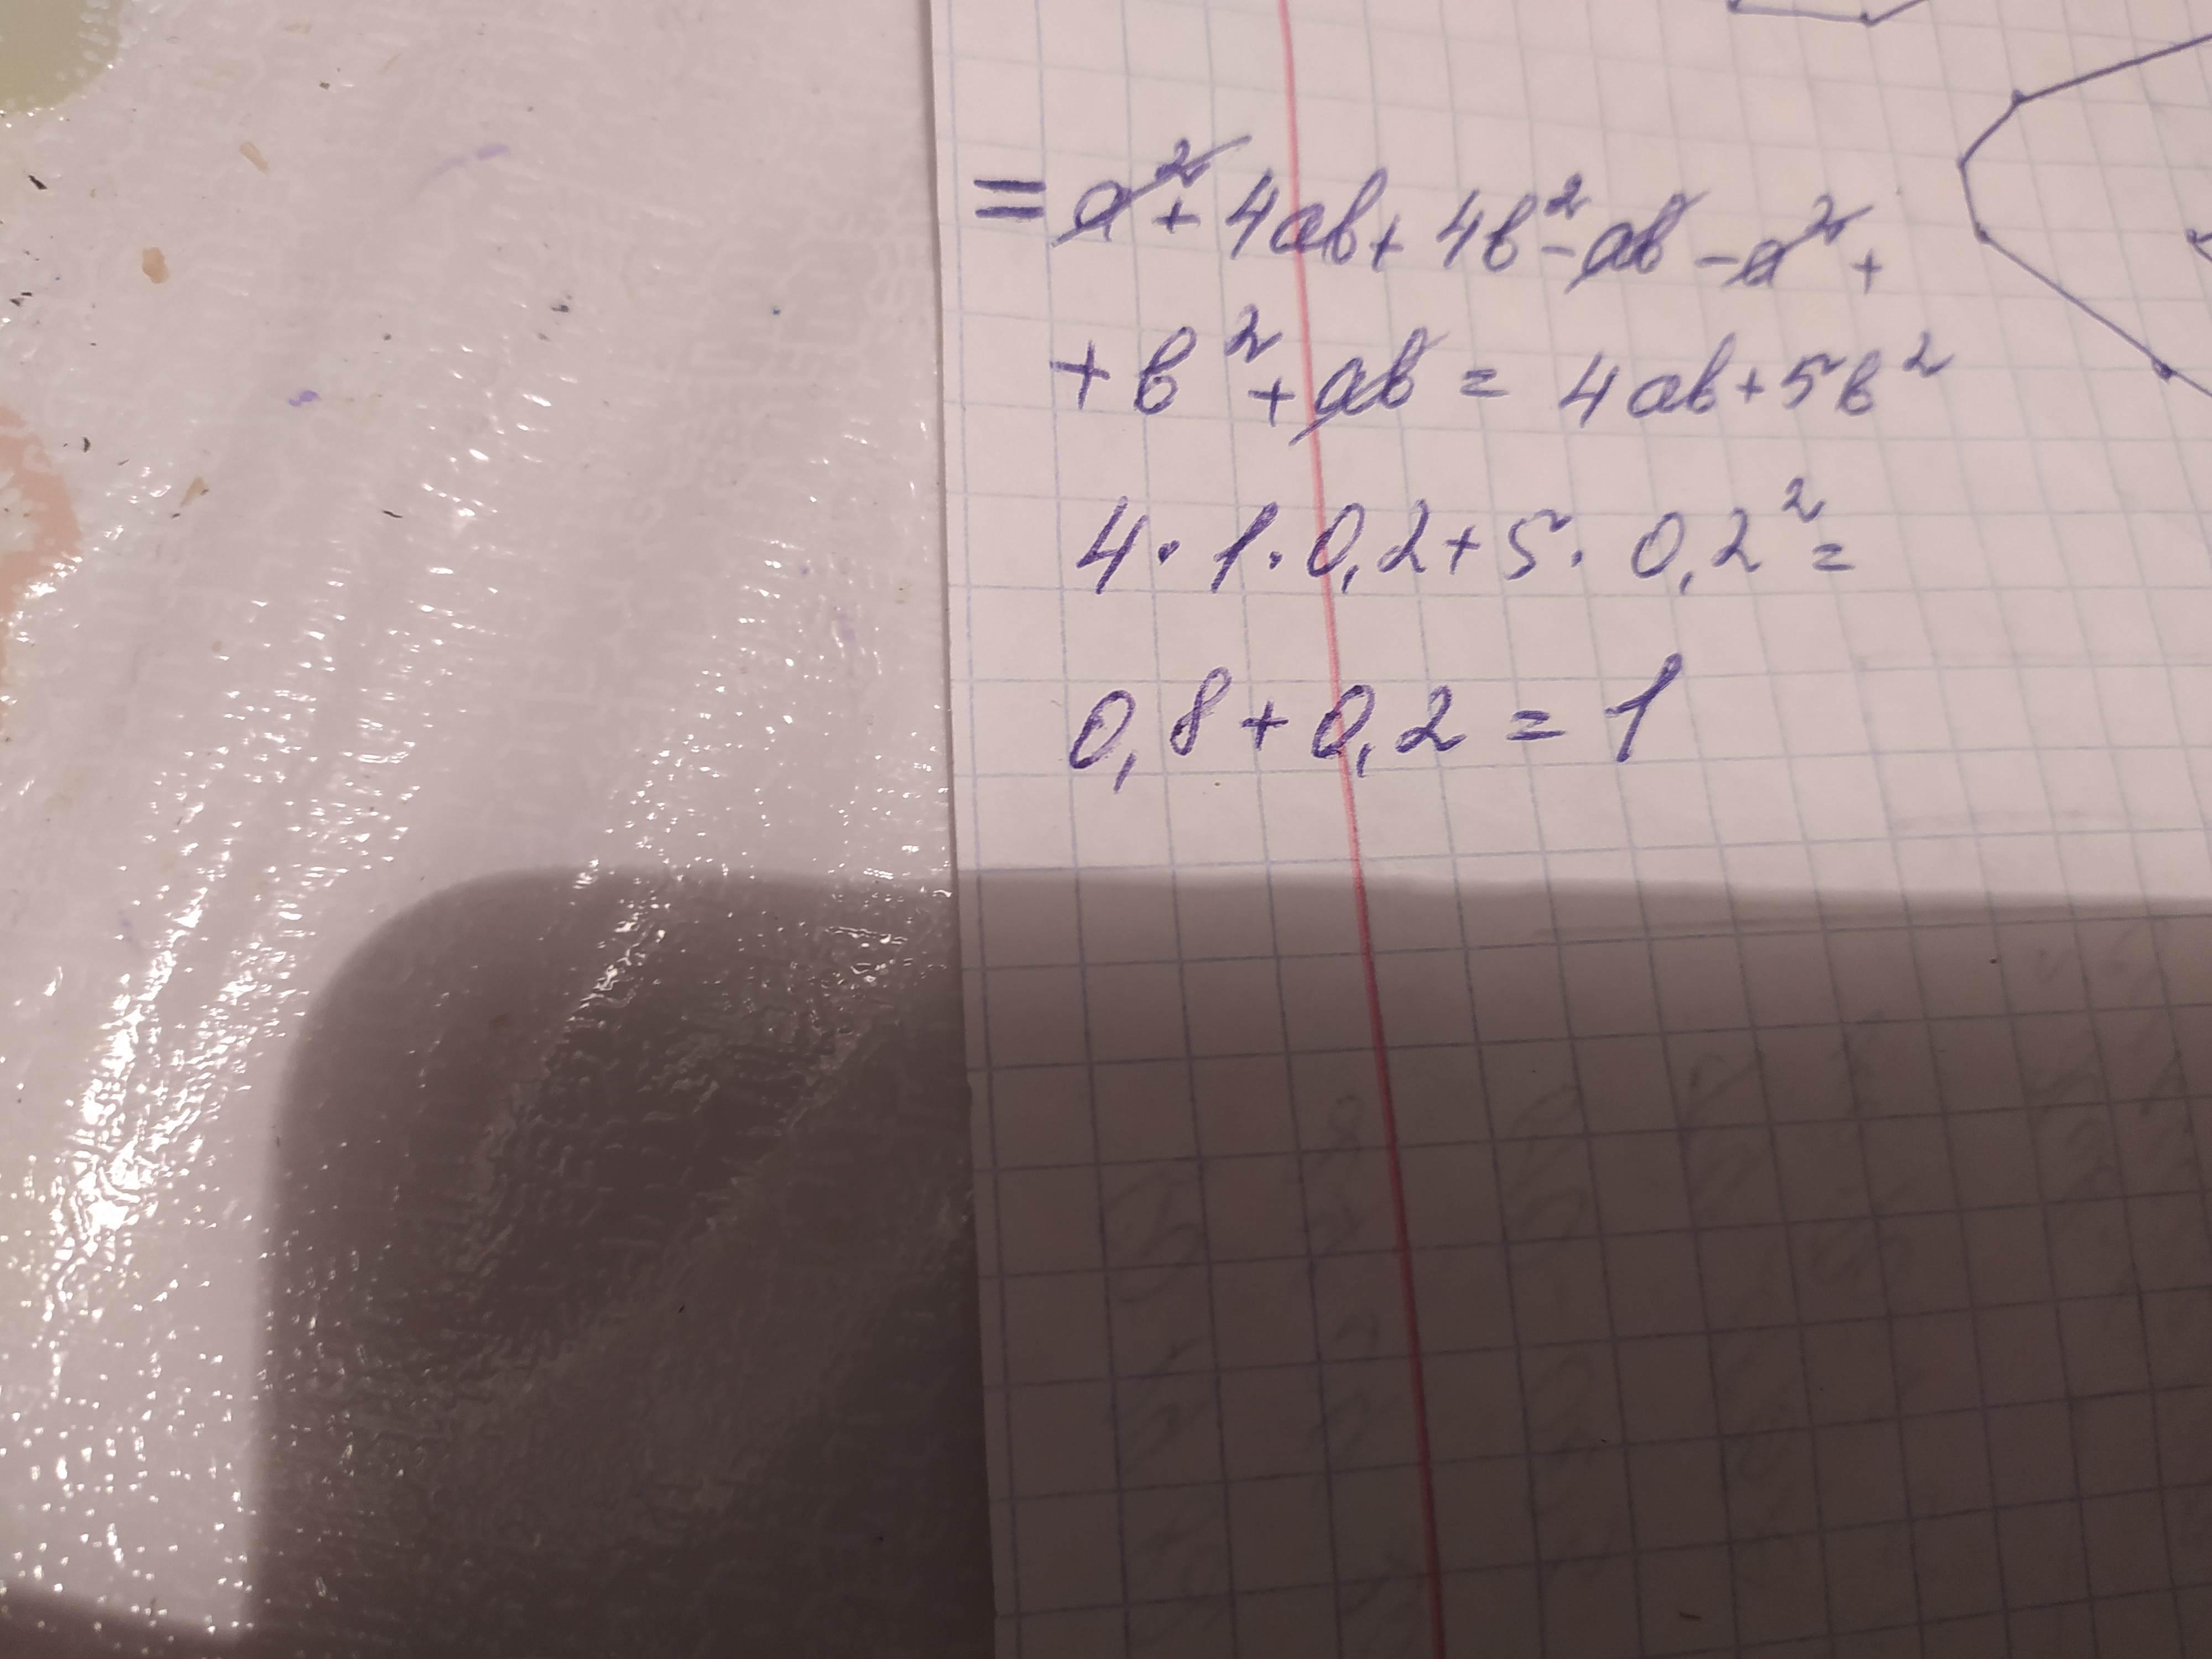 = a² + 4ab + 4b² - ab - a² +
+ b² + ab = 4ab + 5b²
4 · 1 · 0,2 + 5 · 0,2² =
0,8 + 0,2 = 1